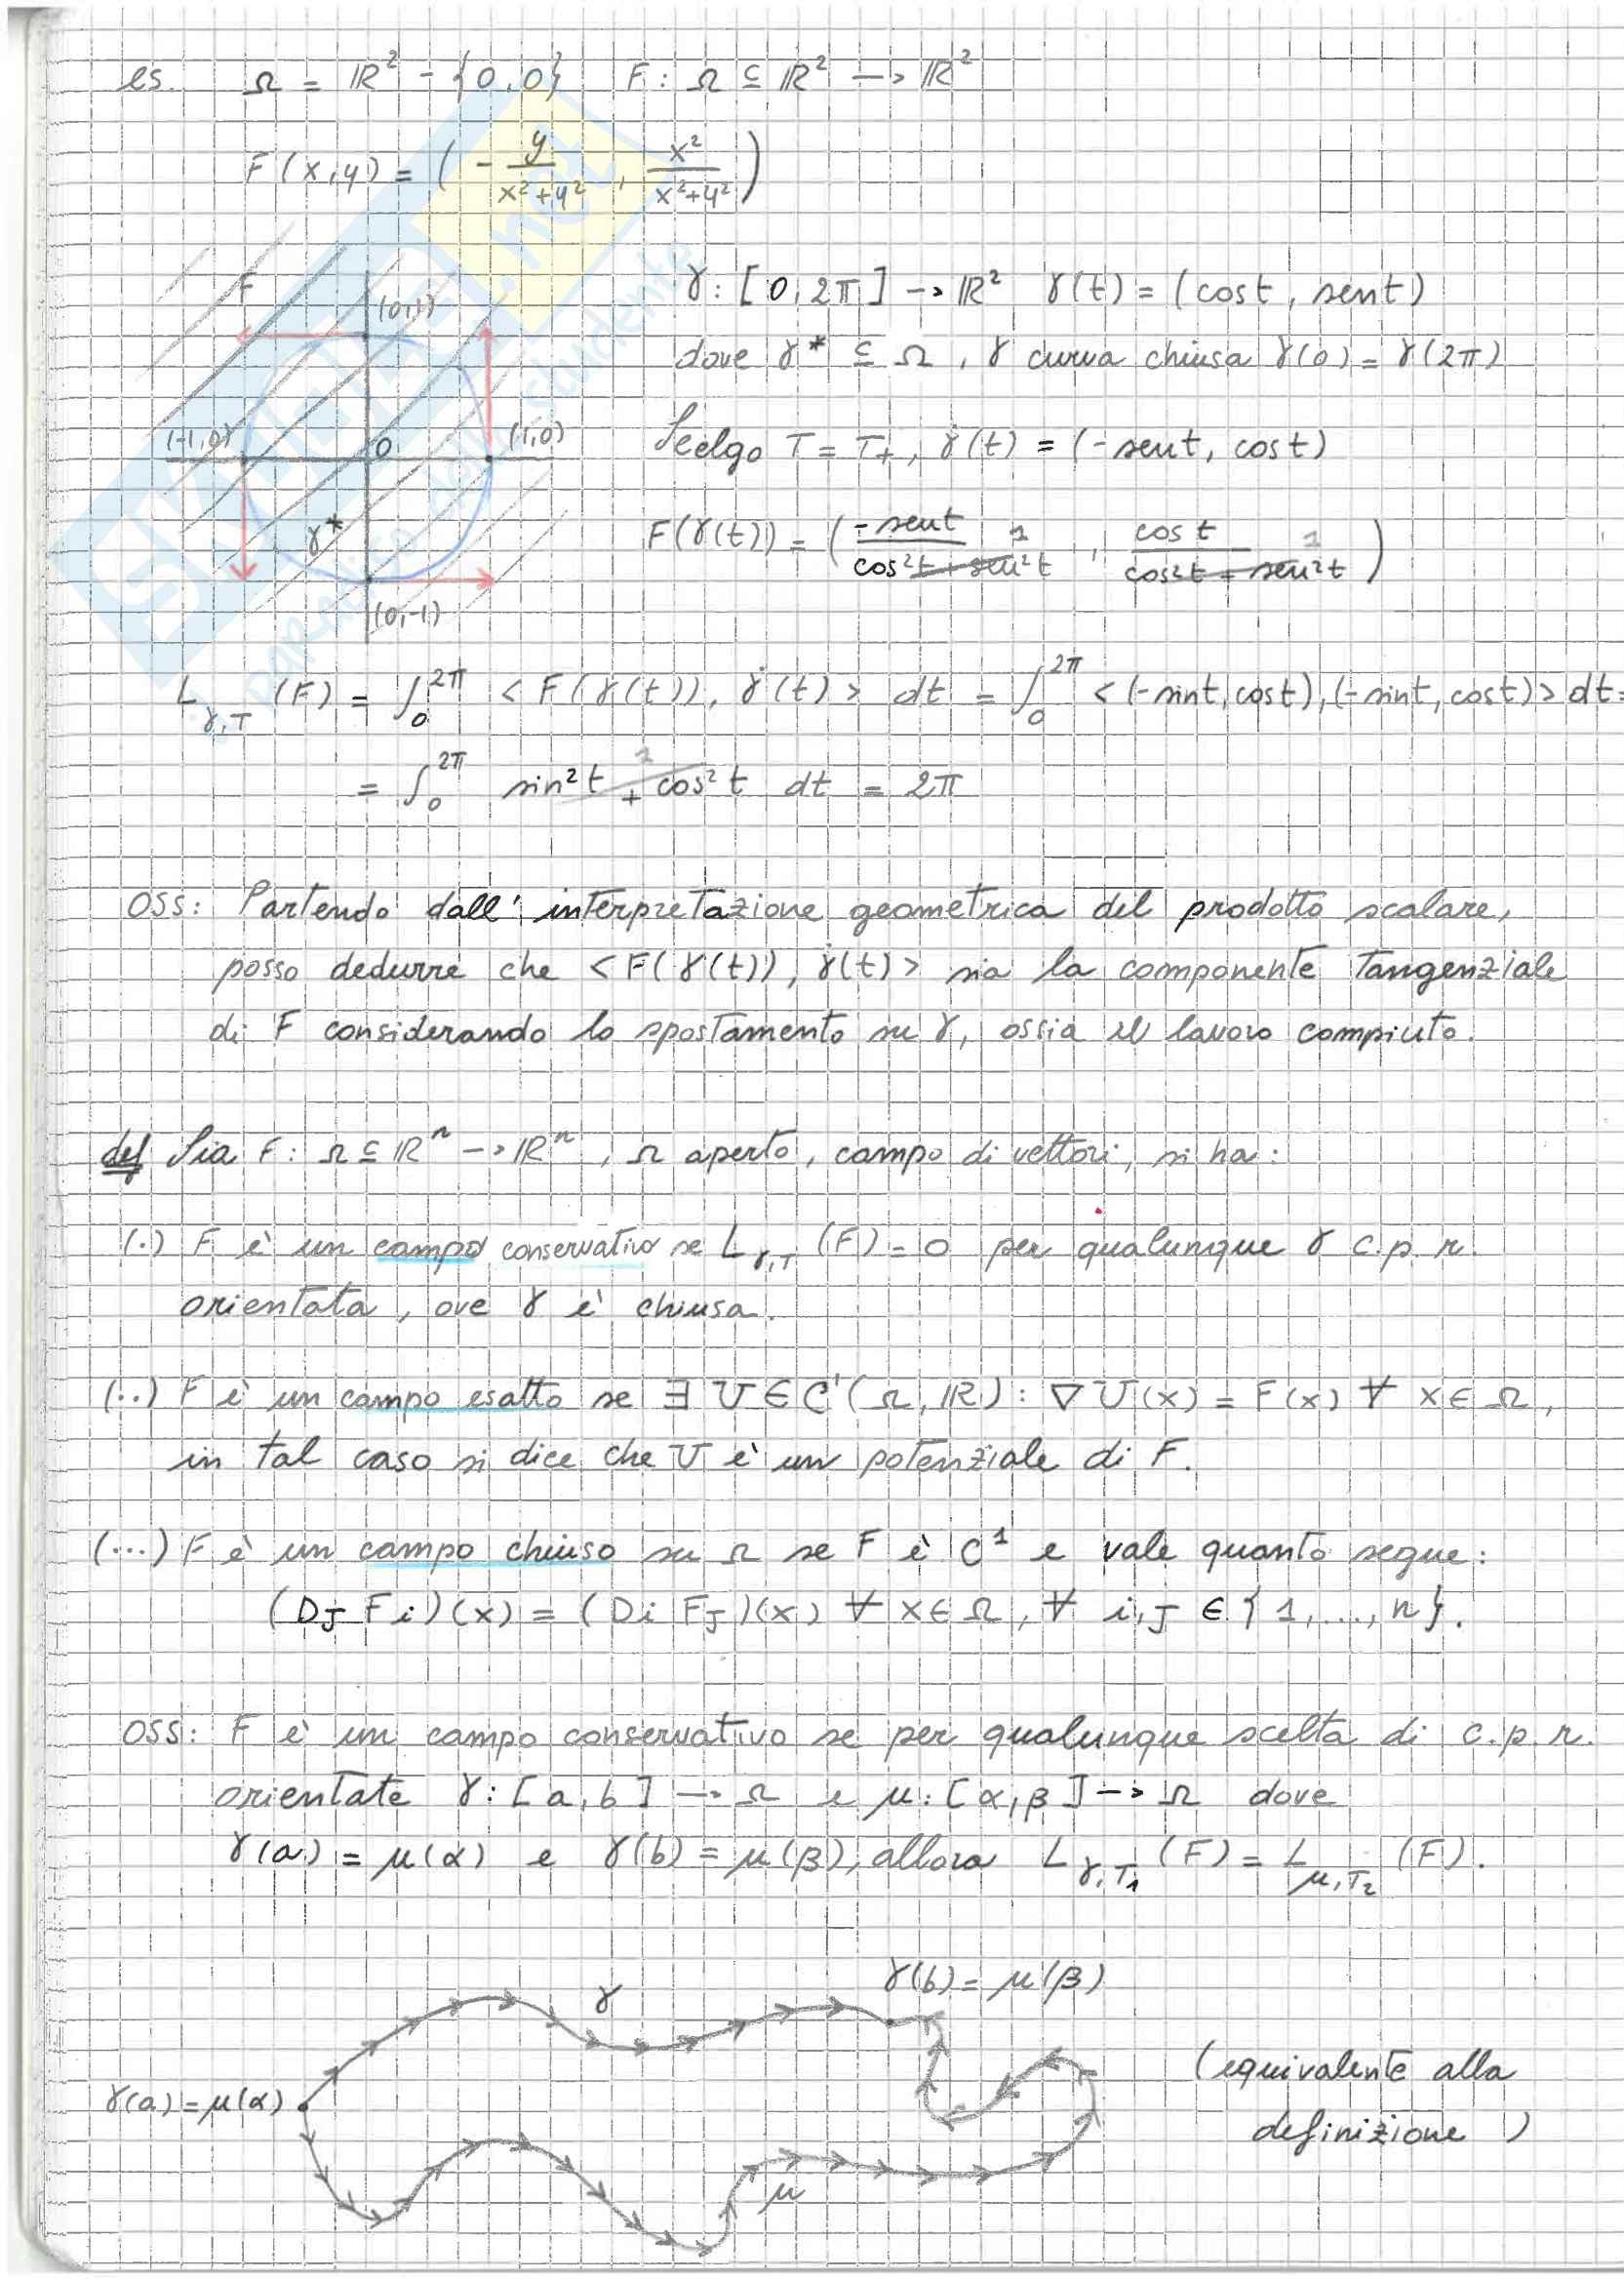 es. Ω = ℝ² - {0,0} F: Ω ⊆ ℝ² → ℝ²
F(x,y) = ( - y/(x²+y²) , x²/(x²+y²) )
F
(0,1)
(-1,0) 0 (1,0)
γ*
(0,-1)
γ: [0,2π] → ℝ² γ(t) = (cost, sent)
dove γ* ⊆ Ω, γ curva chiusa γ(0) = γ(2π)
Scelgo T = T₊, γ̇(t) = (-sent, cost)
F(γ(t)) = ( -sent/(cos²t + sen²t) 1 , cos t/(cos²t + sen²t) 1 )
L_γ,T (F) = ∫₀^2π < F(γ(t)), γ̇(t) > dt = ∫₀^2π < (-sint, cost), (-sint, cost) > dt =
= ∫₀^2π sin²t + cos²t 1 dt = 2π
OSS: Partendo dall' interpretazione geometrica del prodotto scalare,
posso dedurre che < F(γ(t)), γ̇(t) > sia la componente tangenziale
di F considerando lo spostamento su γ, ossia il lavoro compiuto.
def Sia F: Ω ⊆ ℝⁿ → ℝⁿ, Ω aperto, campo di vettori, si ha:
(.) F è un campo conservativo se L_γ,T (F) = 0 per qualunque γ c.p.r.
orientata, ove γ è chiusa.
(..) F è un campo esatto se ∃ U ∈ C¹(Ω, ℝ): ∇U(x) = F(x) ∀ x ∈ Ω,
in tal caso si dice che U è un potenziale di F.
(...) F è un campo chiuso su Ω se F è C¹ e vale quanto segue:
(Dj Fi)(x) = (Di Fj)(x) ∀ x ∈ Ω, ∀ i,j ∈ {1,...,n}.
OSS: F è un campo conservativo se per qualunque scelta di c.p.r.
orientate γ: [a,b] → Ω e μ: [α,β] → Ω dove
γ(a) = μ(α) e γ(b) = μ(β), allora L_γ,T₁ (F) = L_μ,T₂ (F).
γ(b) = μ(β)
γ
γ(a) = μ(α)
μ
(equivalente alla
definizione)
SKUOLA.net